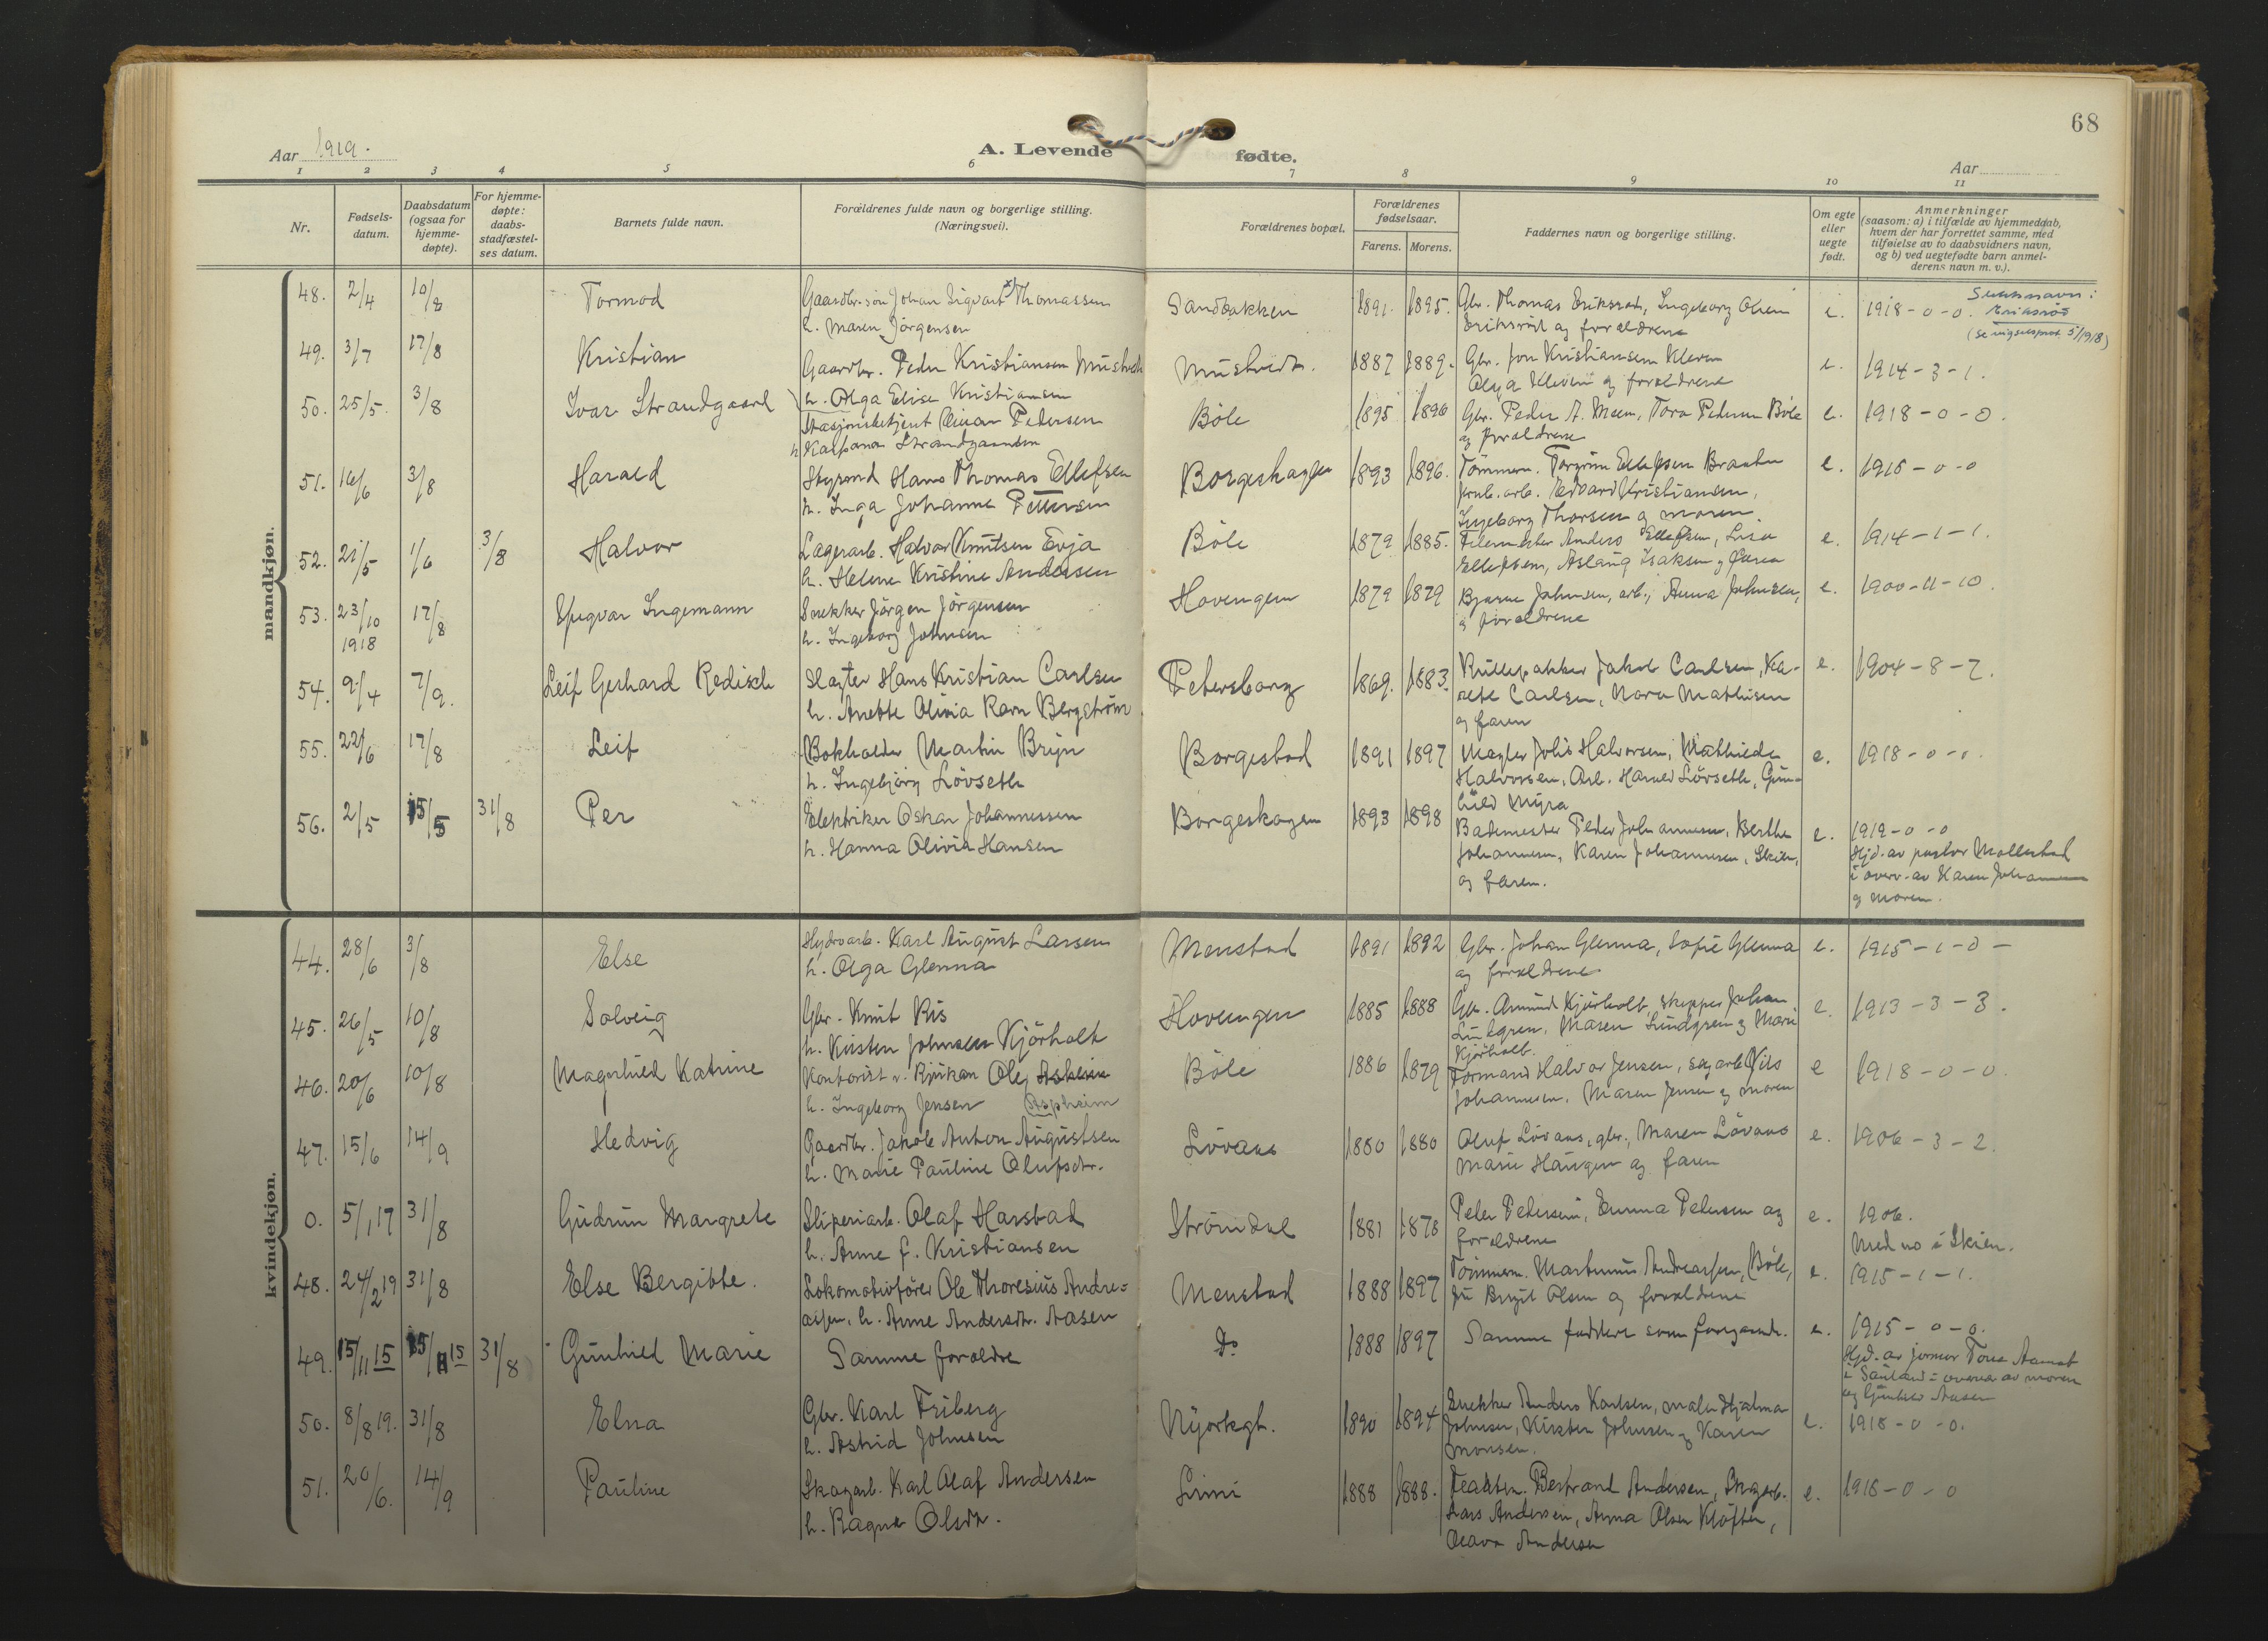 68
Aar 1919.
A. Levende fødte.
Aar
1 2 3 4 5 6 7 8 9 10 11
Nr.
Fødsels-
datum.
Daabsdatum
(ogsaa for
hjemme-
døpte).
For hjemme-
døpte:
daabs-
stadfæstel-
ses datum.
Barnets fulde navn.
Forældrenes fulde navn og borgerlige stilling.
(Næringsvei).
Forældrenes bopæl.
Forældrenes
fødselsaar.
Farens. Morens.
Faddernes navn og borgerlige stilling.
Om egte
eller
uegte
født.
Anmerkninger
(saasom: a) i tilfælde av hjemmedaab,
hvem der har forrettet samme, med
tilføielse av to daabsvidners navn,
og b) ved uegtefødte barn anmel-
derens navn m. v.).
mandkjøn.
48. 2/4 10/8 Tormod
Gaardbr. søn Johan Sigvart Thomassen
h. Maren Jörgensen
Sandbakken 1891. 1895.
Gbr. Thomas Eriksröd, Ingeborg Olsen
Eriksröd og forældrene
e. 1918-0-0.
Eriksröd
49. 3/7 17/8 Kristian
Gaardbr. Peder Kristiansen Mustvedt
h. Olga Elise Kristiansen
Mustvedt. 1887 1889.
Gbr. Jon Kristiansen Kleven
Olga Kleven og forældrene
e. 1914-3-1.
50. 25/5. 3/8 Ivar Strandgaard
Stasjonsbetjent Einar Pedersen
h. Strandgaard
Böle 1895 1896
Gbr. Peder A. Moen, Tora Pedersen Böle
og forældrene
e. 1918-0-0.
51. 16/6 3/8 Harald
Styrmd Hans Thomas Ellefsen
h. Inga Johanne Pettersen
Borgeskogen 1893 1896.
Tömmerm. Torgrim Ellefsen
arb. Edvard Kristiansen,
Ingeborg Thorsen og moren
e. 1915-0-0
52. 21/5 1/6 3/8 Halvor
Lagerarb. Halvor Knutsen Evja
h. Helene Kristine Andersen
Böle 1879 1885.
Anders Ellefsen, Lisa
Ellefsen, Aslaug Isaksen og faren
e. 1914-1-1.
53. 23/10 17/8 Yngvar Ingemann
1918
Snekker Jörgen Jörgensen
h. Ingeborg Johnsen
Hovengen 1879 1879
Bjarne Johnsen, arb., Anna Johnsen,
og forældrene
e. 1900-11-10.
54. 9/4 7/9. Leif Gerhard Redisch
Slagter Hans Kristian Carlsen
h. Anette Olivia Ravn Bergström
Petersborg 1869. 1883.
Rullepakker Jakob Carlsen, Ka-
rete Carlsen, Nora Mathisen
og faren
e. 1904-8-7.
55. 22/6 17/8 Leif
Bokholder Martin Bryn
h. Ingebjörg Lövseth
Borgestad 1891 1897
Halvorsen, Mathilde
Halvorsen, Arb. Harald Lövseth, Gun-
hild Myra
e. 1918-0-0.
56. 2/5 15/5 31/8 Per
Elektriker Oskar Johannessen
h. Hanna Olivia Hansen
Borgeskogen 1893 1898
Bademester Peder Johannessen, Berthe
Johannessen, Karen Johannessen, Skien,
og faren.
e. 1919-0-0
Hjd. av pastor Mollestad
i overv. av Karen Johannessen
og moren.
kvindekjøn.
44. 28/6 3/8 Else
Hydroarb. Karl August Larsen
h. Olga Glenna
Menstad 1891 1892
Gbr. Johan Glenna, Sofie Glenna
og forældrene
e. 1915-1-0-
45. 26/5 10/8 Solveig
Gbr. Knut Ris
h. Kirsten Johnsen Kjörholt
Hovengen 1885 1888
Gbr. Amund Kjörholt, skipper Johan
Lundgren, Maren Lundgren og Marie
Kjörholt.
e. 1913-3-3.
46. 20/6 10/8 Magnhild Katrine
Kontorist v. Rjukan Ole
h. Ingeborg Jensen Aspheim
Böle 1886 1879
Formand Halvor Jensen, sagarb. Nils
Johannessen, Maren Jensen og moren
e 1918-0-0.
47. 15/6 14/9 Hedvig
Gaardbr. Jakob Anton Augustsen
h. Marie Pauline Olufsdtr.
Lövaas 1880 1880
Oluf Lövaas, gbr., Maren Lövaas
Marie Haugen og faren
e. 1906-3-2.
0. 5/1 17 31/8 Gudrun Margrete
Sliperiarb. Olaf Harstad
h. Anne f. Kristiansen
Strömdal 1881 1878
Peder Pedersen, Emma Pedersen og
forældrene
e. 1906.
Med no i Skien.
48. 24/2 19 31/8 Else Bergitte.
Lokomotivförer Ole Thoresius Andre-
assen, h. Anne Andersdtr. Aasen
Menstad 1888 1897
Tömmerm. Martinius Andreassen, Böle,
Birgit Olsen og forældrene
e. 1915-1-1.
49. 15/11 15 15/11 15 31/8 Gunhild Marie
Samme forældre
Do 1888 1897
Samme faddere som foregaaende.
e. 1915-0-0.
Hjd. av jormor Tone Aamot
i Sauland i overv. av moren
og Gunhild Aasen
50. 8/8 19. 31/8 Elna
Gbr. Karl Friberg
h. Astrid Johnsen
Nyorkgt. 1890 1894
Snekker Anders Karlsen, maler Hjalmar
Johnsen, Kirsten Johnsen og Karen
Monsen.
e. 1918-0-0.
51. 20/6. 14/9 Pauline
Skogarb. Karl Olaf Andersen
h. Ragna Olsdtr.
Limi 1888 1888.
Bertrand Andersen, Skogarb.
Lars Andersen, Anna Olsen Klöften,
Olava Andersen
e. 1918-0-0